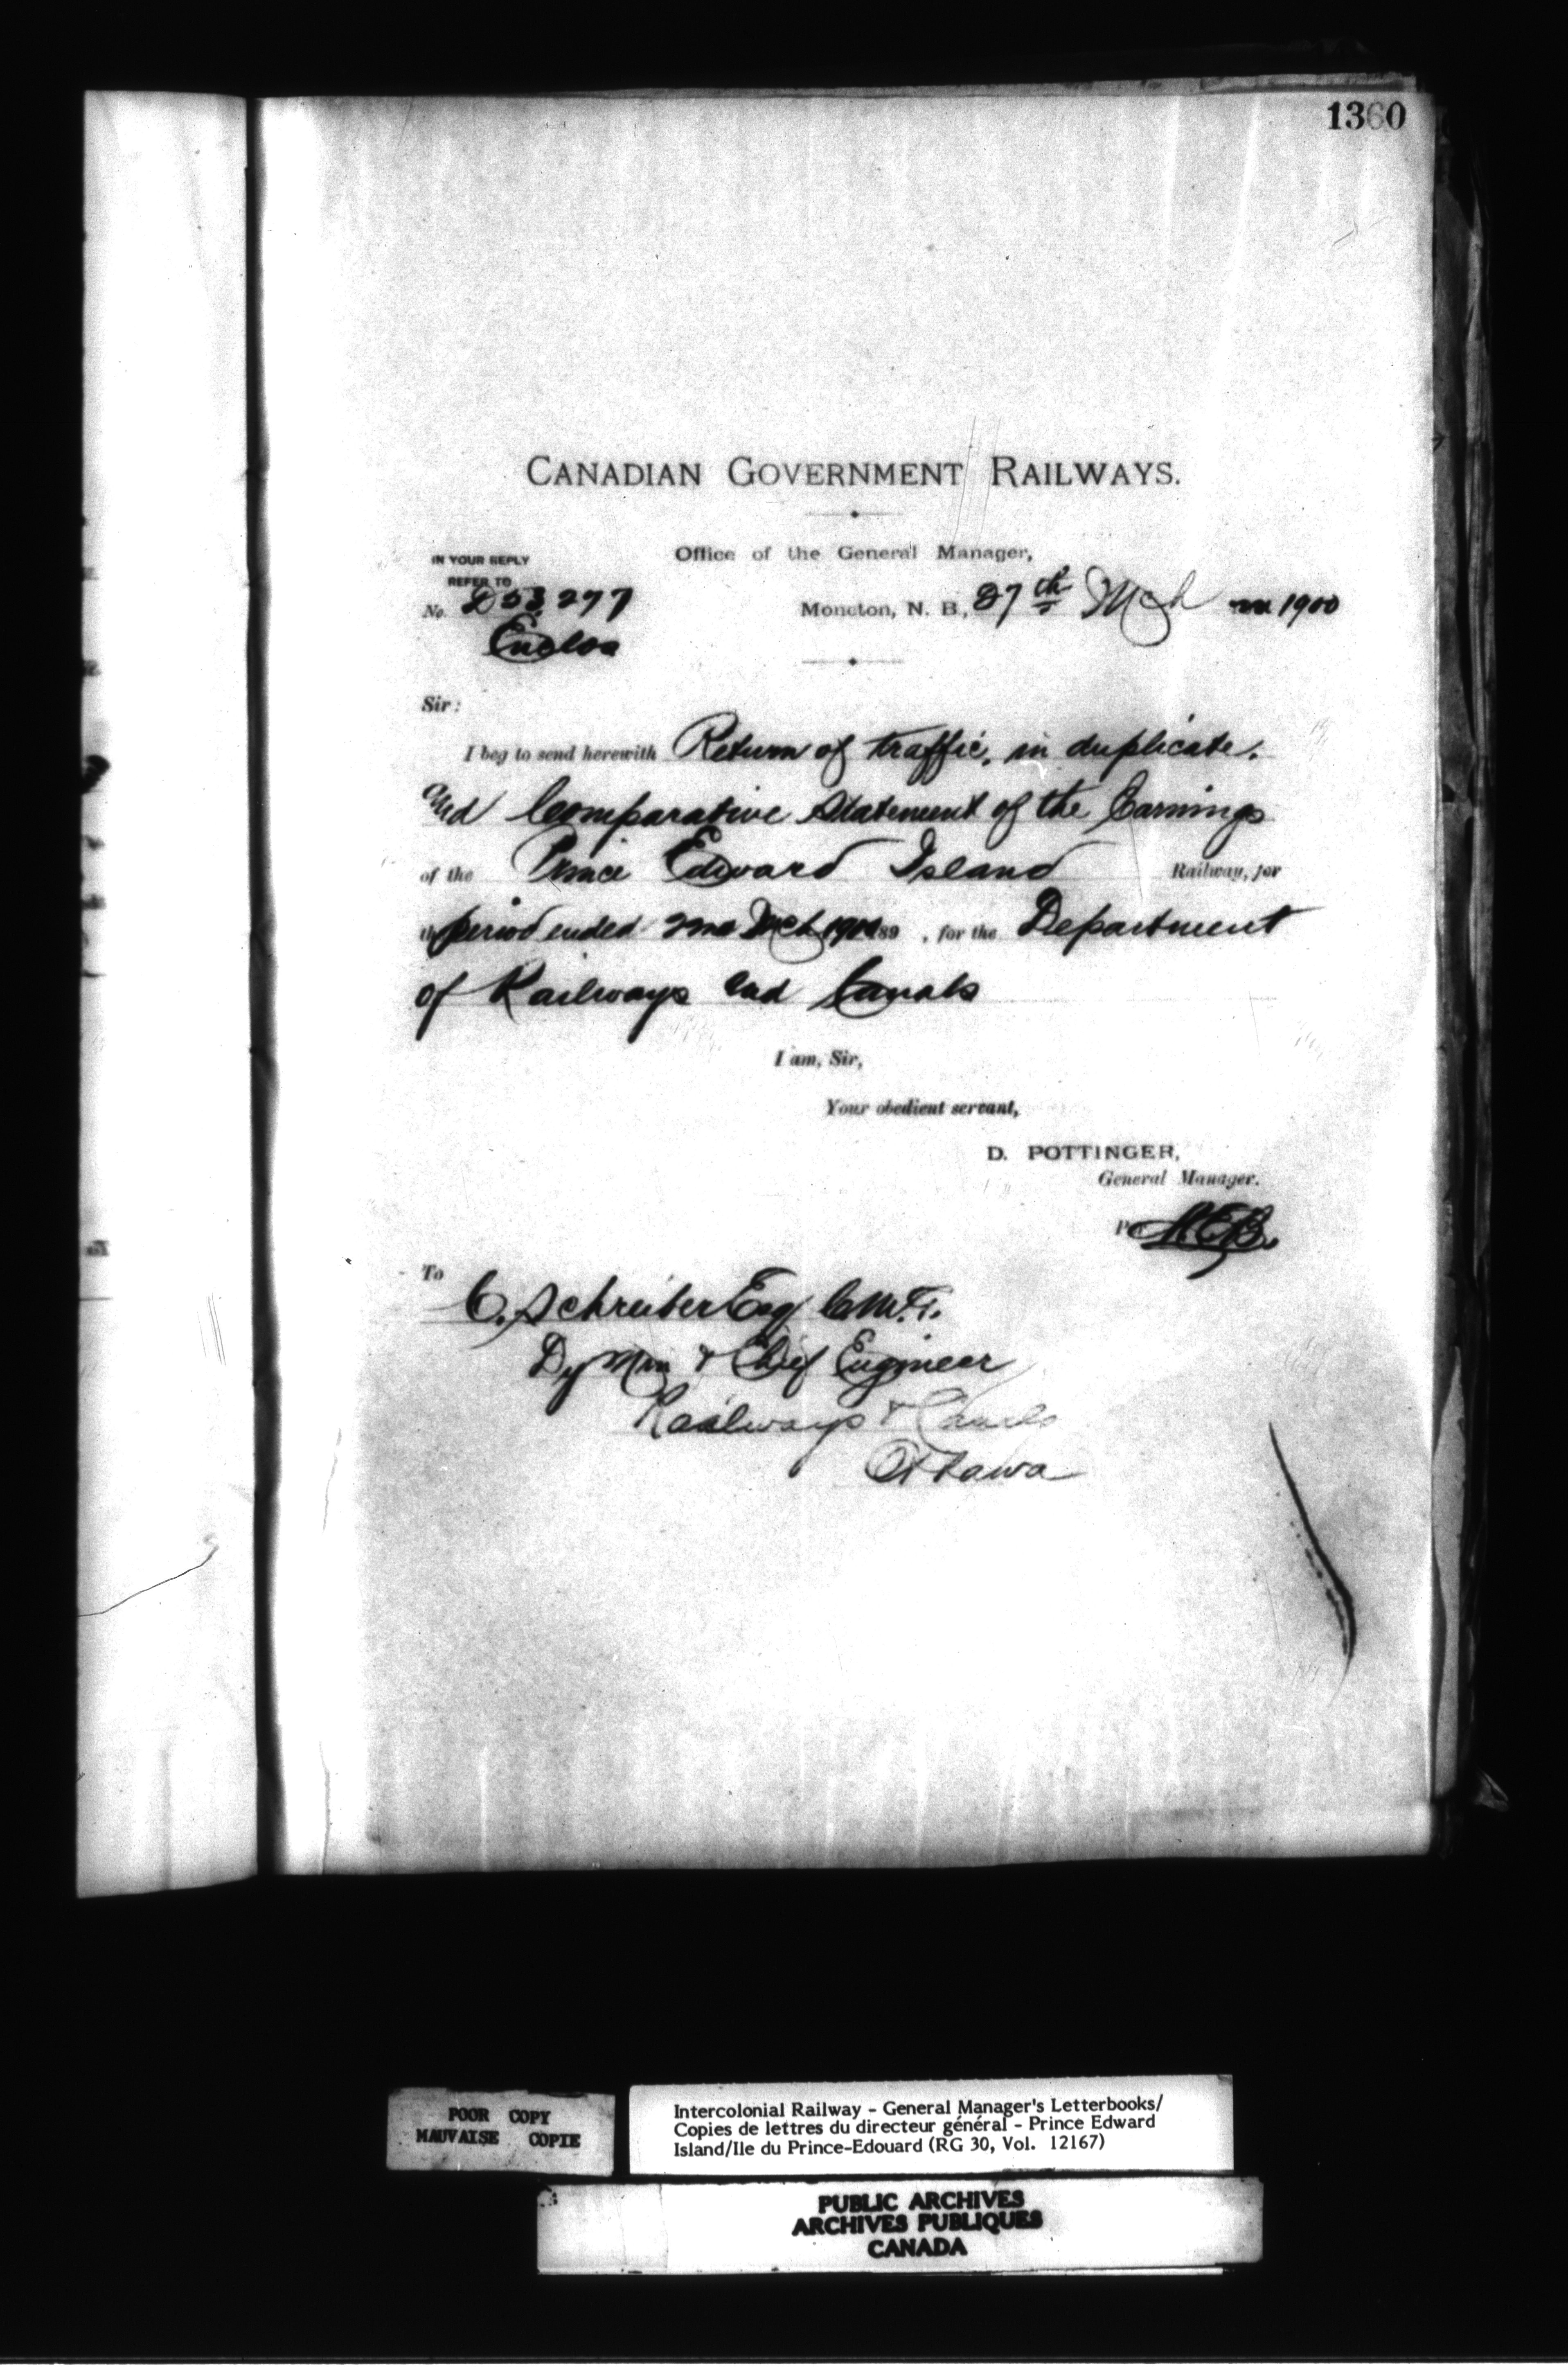 1360
CANADIAN GOVERNMENT RAILWAYS.
Office of the General Manager,
IN YOUR REPLY
REFER TO
No. D53297
Enclos
Moncton, N. B., 27th Mch 1900
Sir:
I beg to send herewith Return of traffic, in duplicate,
and Comparative Statement of the Earnings
of the Prince Edward Island Railway, for
period ended 2nd Mch 1900 89 , for the Department
of Railways and Canals
I am, Sir,
Your obedient servant,
D. POTTINGER,
General Manager.
Per
To
C. Schreiber Esq C.M.G.
Dy Min & Chief Engineer
Railways & Canals
Ottawa
POOR COPY
MAUVAISE COPIE
Intercolonial Railway - General Manager's Letterbooks/
Copies de lettres du directeur général - Prince Edward
Island/Ile du Prince-Edouard (RG 30, Vol. 12167)
PUBLIC ARCHIVES
ARCHIVES PUBLIQUES
CANADA